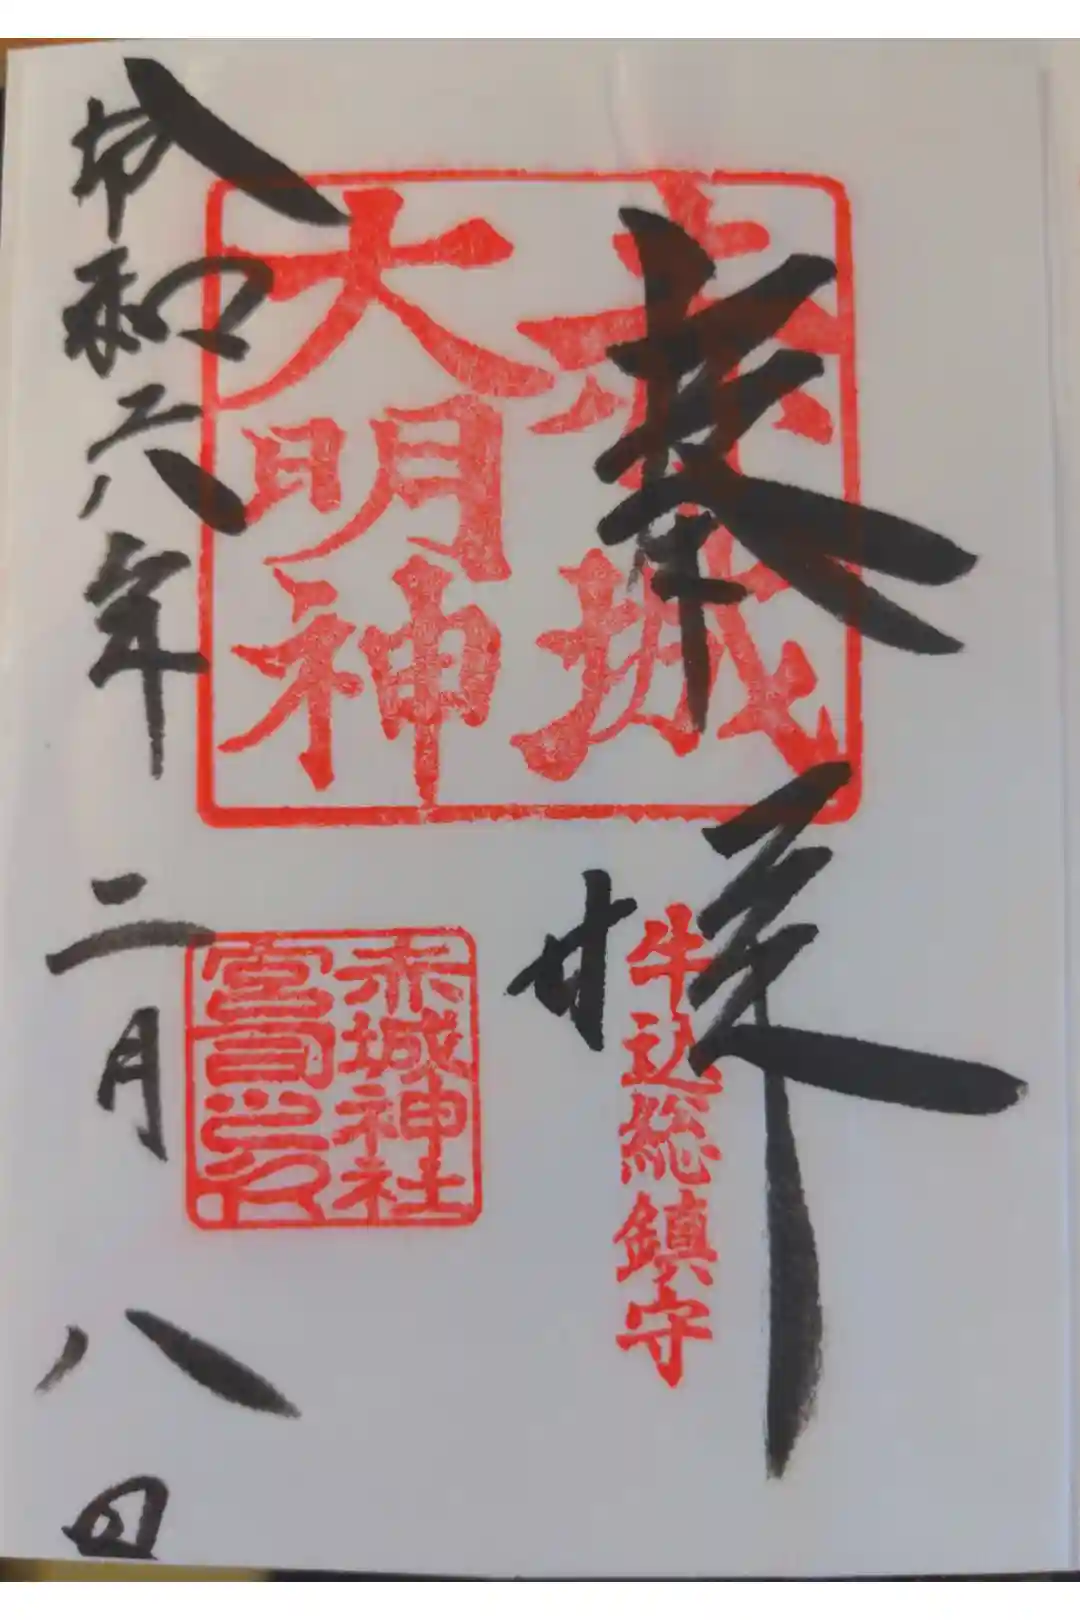 奉拝
赤城
大明神
牛込総鎮守
赤城神社
宮司之印
令和六年二月八日